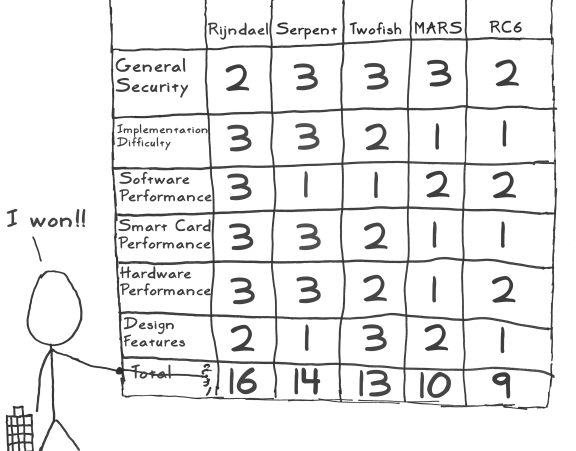 Rijndael Serpent Twofish MARS RC6
General
Security 2 3 3 3 2
Implementation
Difficulty 3 3 2 1 1
Software
Performance 3 1 1 2 2
I won!!
Smart Card
Performance 3 3 2 1 1
Hardware
Performance 3 3 2 1 2
Design
Features 2 1 3 2 1
Total 16 14 13 10 9